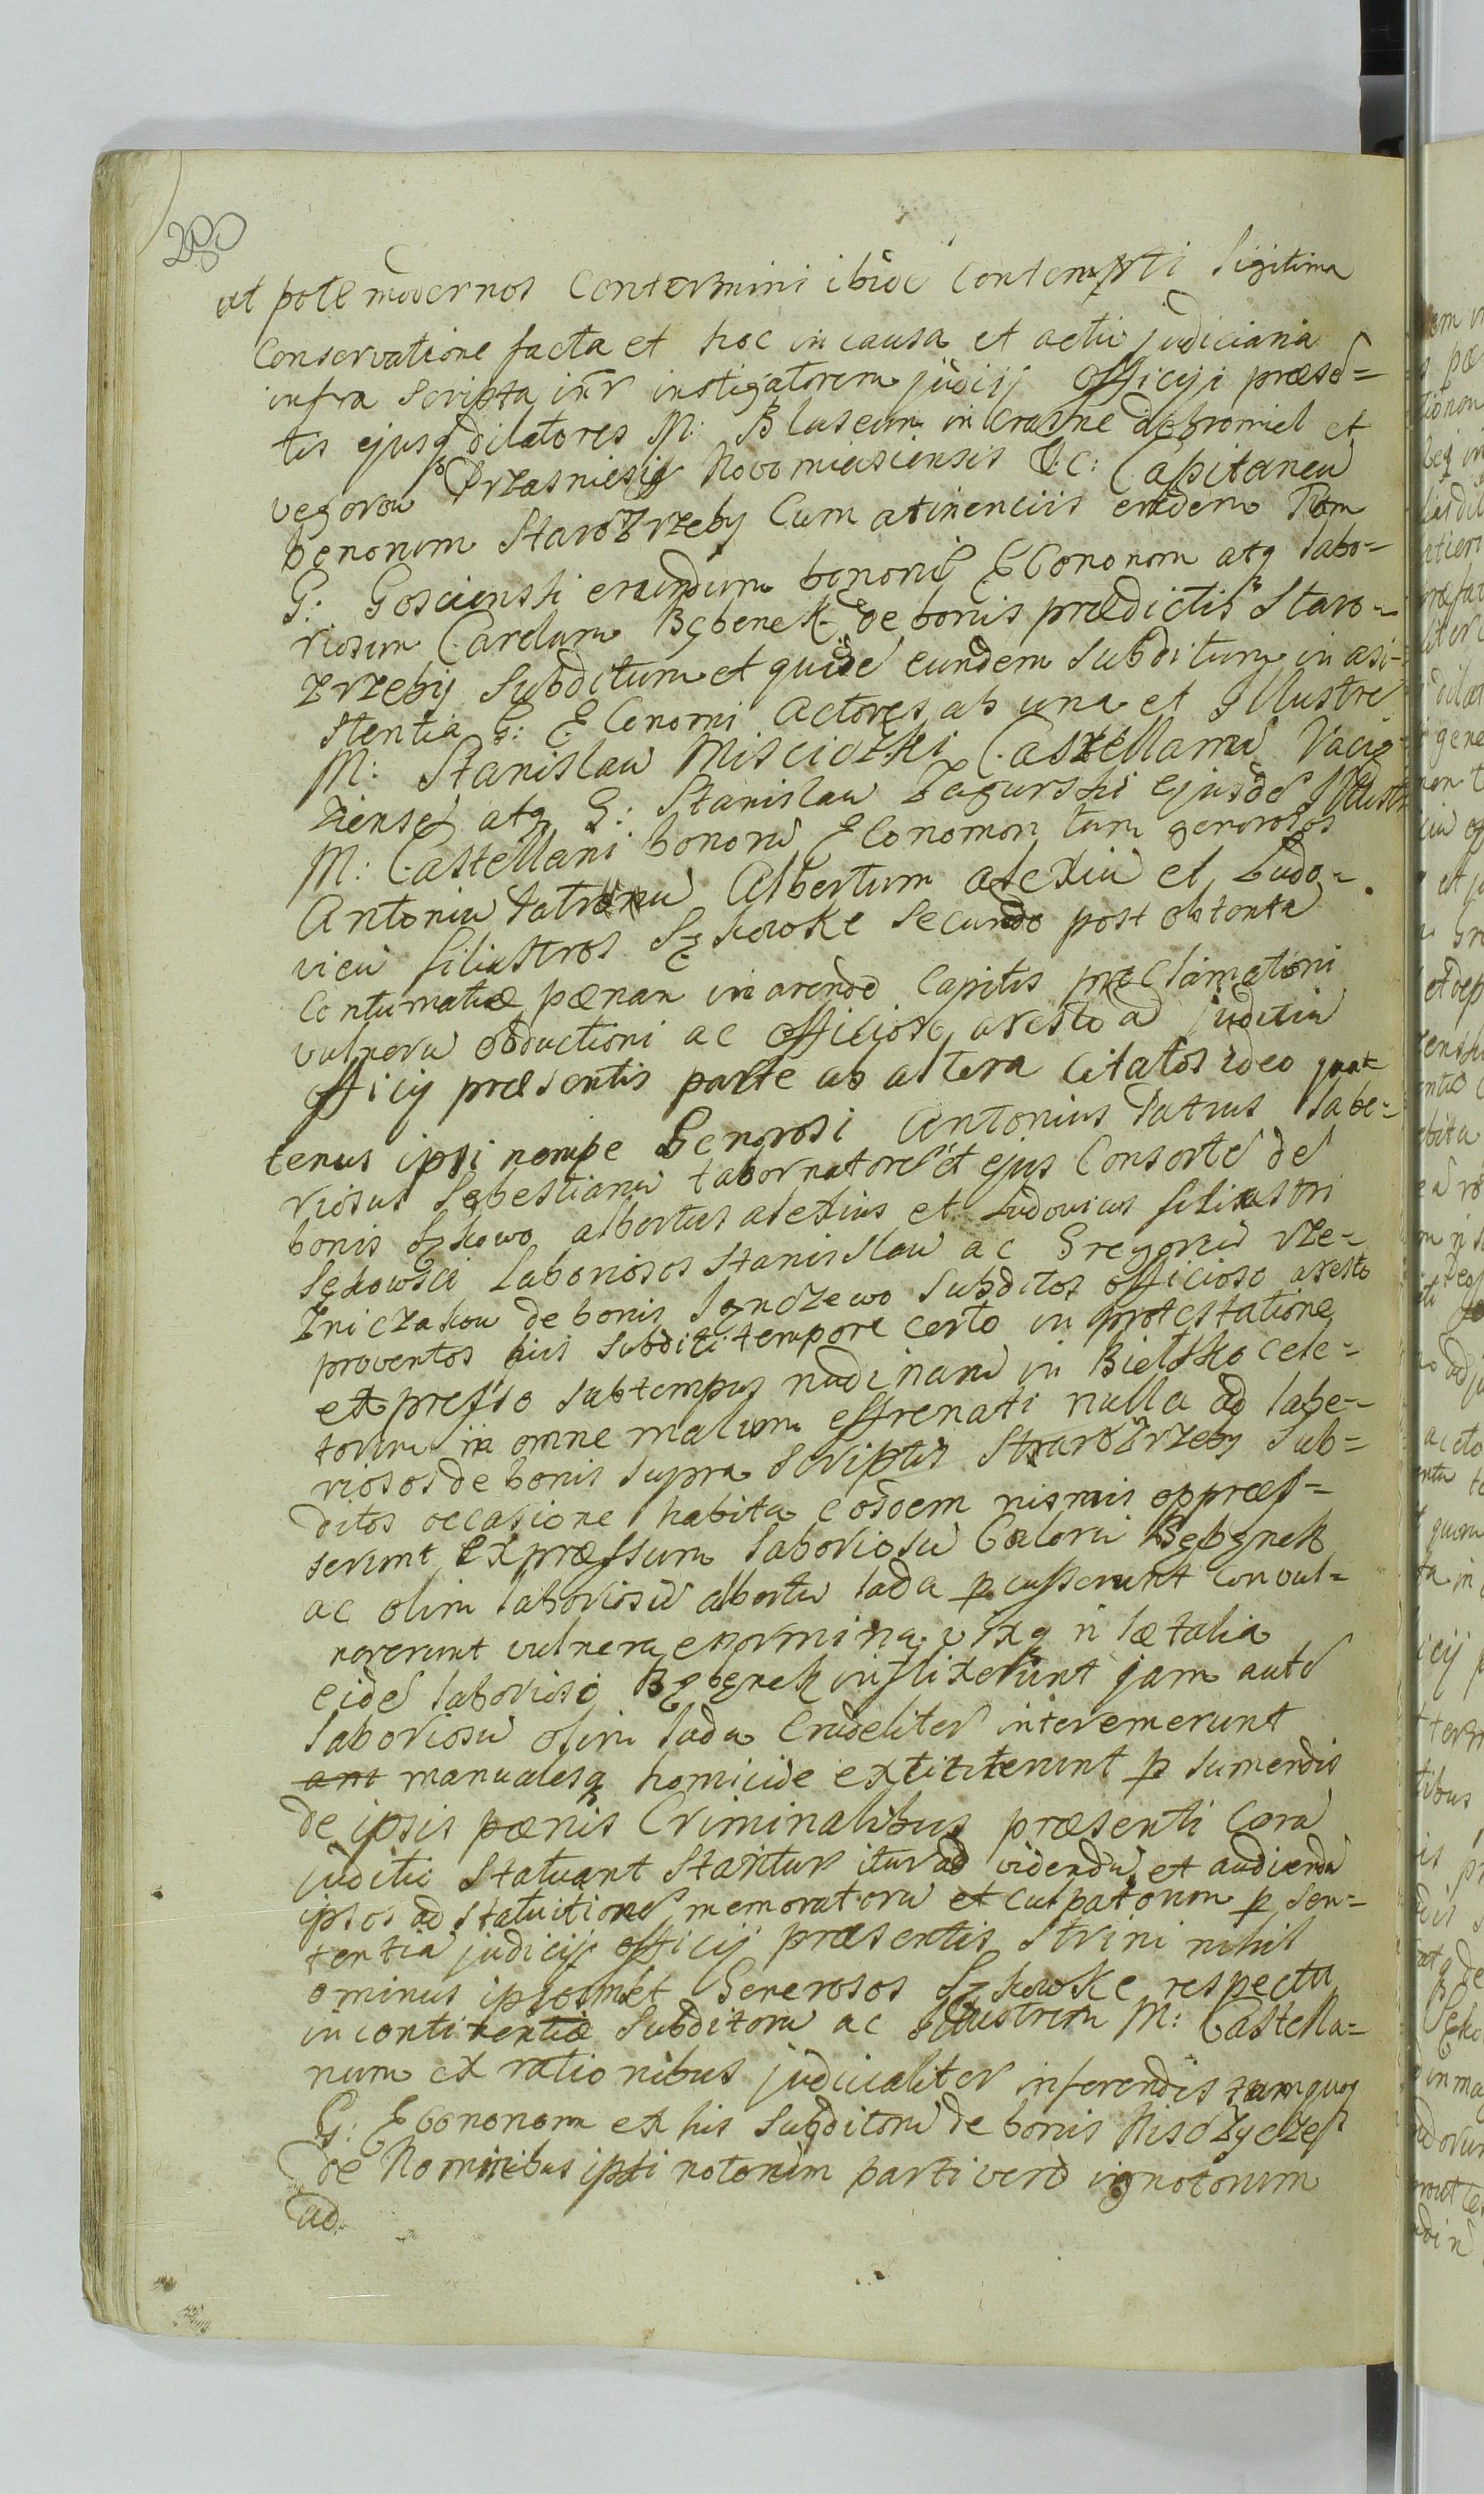 280
ut pote modernos Contermini ibidē Contenti Ligitima
Conservatione facta et hoc in causa et actū judiciaria
infra scripta inr̃ instigatorem judicij officiji præsē=
tis ejusq dilatores M: Blaseum in Crasne de bromiel et
vegorow Przasniesig Novomieisiensis &c: Capitaneū
benonum StaroZrzeby Cum atinenciis eredem Tum
G: Goscienski erundum bononū EConomom atq labo=
riosum Carolum Bębenek de bonis prædictis Staro=
Zrzeby Subditum et quidē eundem Subditum in asi-
stentia G: EConomi Actores ab una et Illustrē
M: Stanislaū Misciozki Caszellanū Vacig
Ziensē atq G: Stanislaū Zagurski Ejusdē Illustr
M: Castellani bonorū EConomon tum generosos
Antoniū Albertum alexiū et Ludo=
vicū filiastros Sękowske secundo post obtenta
Contumatiæ pænan in arendo Capitis præclamationi
vulnerū obductioni ac officioso aresto ad juditiū
officij præsentis parte ab altera Citatos ideo quat
tenus ipsi nempe Generosi Antonius Tatrus labe=
riosus Sebestianū tabornatorē et ejus Consortē de
bonis Sękowo albertus alexius et Ludovicus filiastri
Sękowsci Laboriosos Stanislaū ac Gregoriū rze=
Zniczakow de bonis Sędzewo Subditos officioso aresto
proventos his Subditi tempore certo in protestatione
expresso sub tempus nudinarū in Bielsko Cele=
torum in omne malum effrenati nulla ad labe=
riosos de bonis supra scriptis StaroZrzeby Sub=
ditos occasione habita eosdem nismis oppræs=
serunt expræssum laboriosū Calorū Bębenek
ac olim laboriosū albertū lada p̱cusserunt Convul=
neverunt vulnera enormina vixq n lætalia
eidē laborioso Bębenek inflixerunt jam autē
laboriosū olim lada Crudeliter interemerunt
ant manualesq homicide extititerunt p̱ sumendis
de ipsis pænis Criminalibus præsenti Corā
juditio Statuant Stantur itur ad videndū et audiendū
ipsos ad statuitionē memoratorū et culpatorum p̱ sen=
tentiā judicij officij præsentis Strini nihil
ominus ipsosmet Generosos Sękowske respectu
incontinentiæ Subditorū ac Illustrem M: Castella=
num ex rationibus judicialiter inferendis tamquaq
G: Econonom ex his Subditorū de bonis Niszczyczes
de Nominibus ipsi notorum parti verō ignotorum
ad